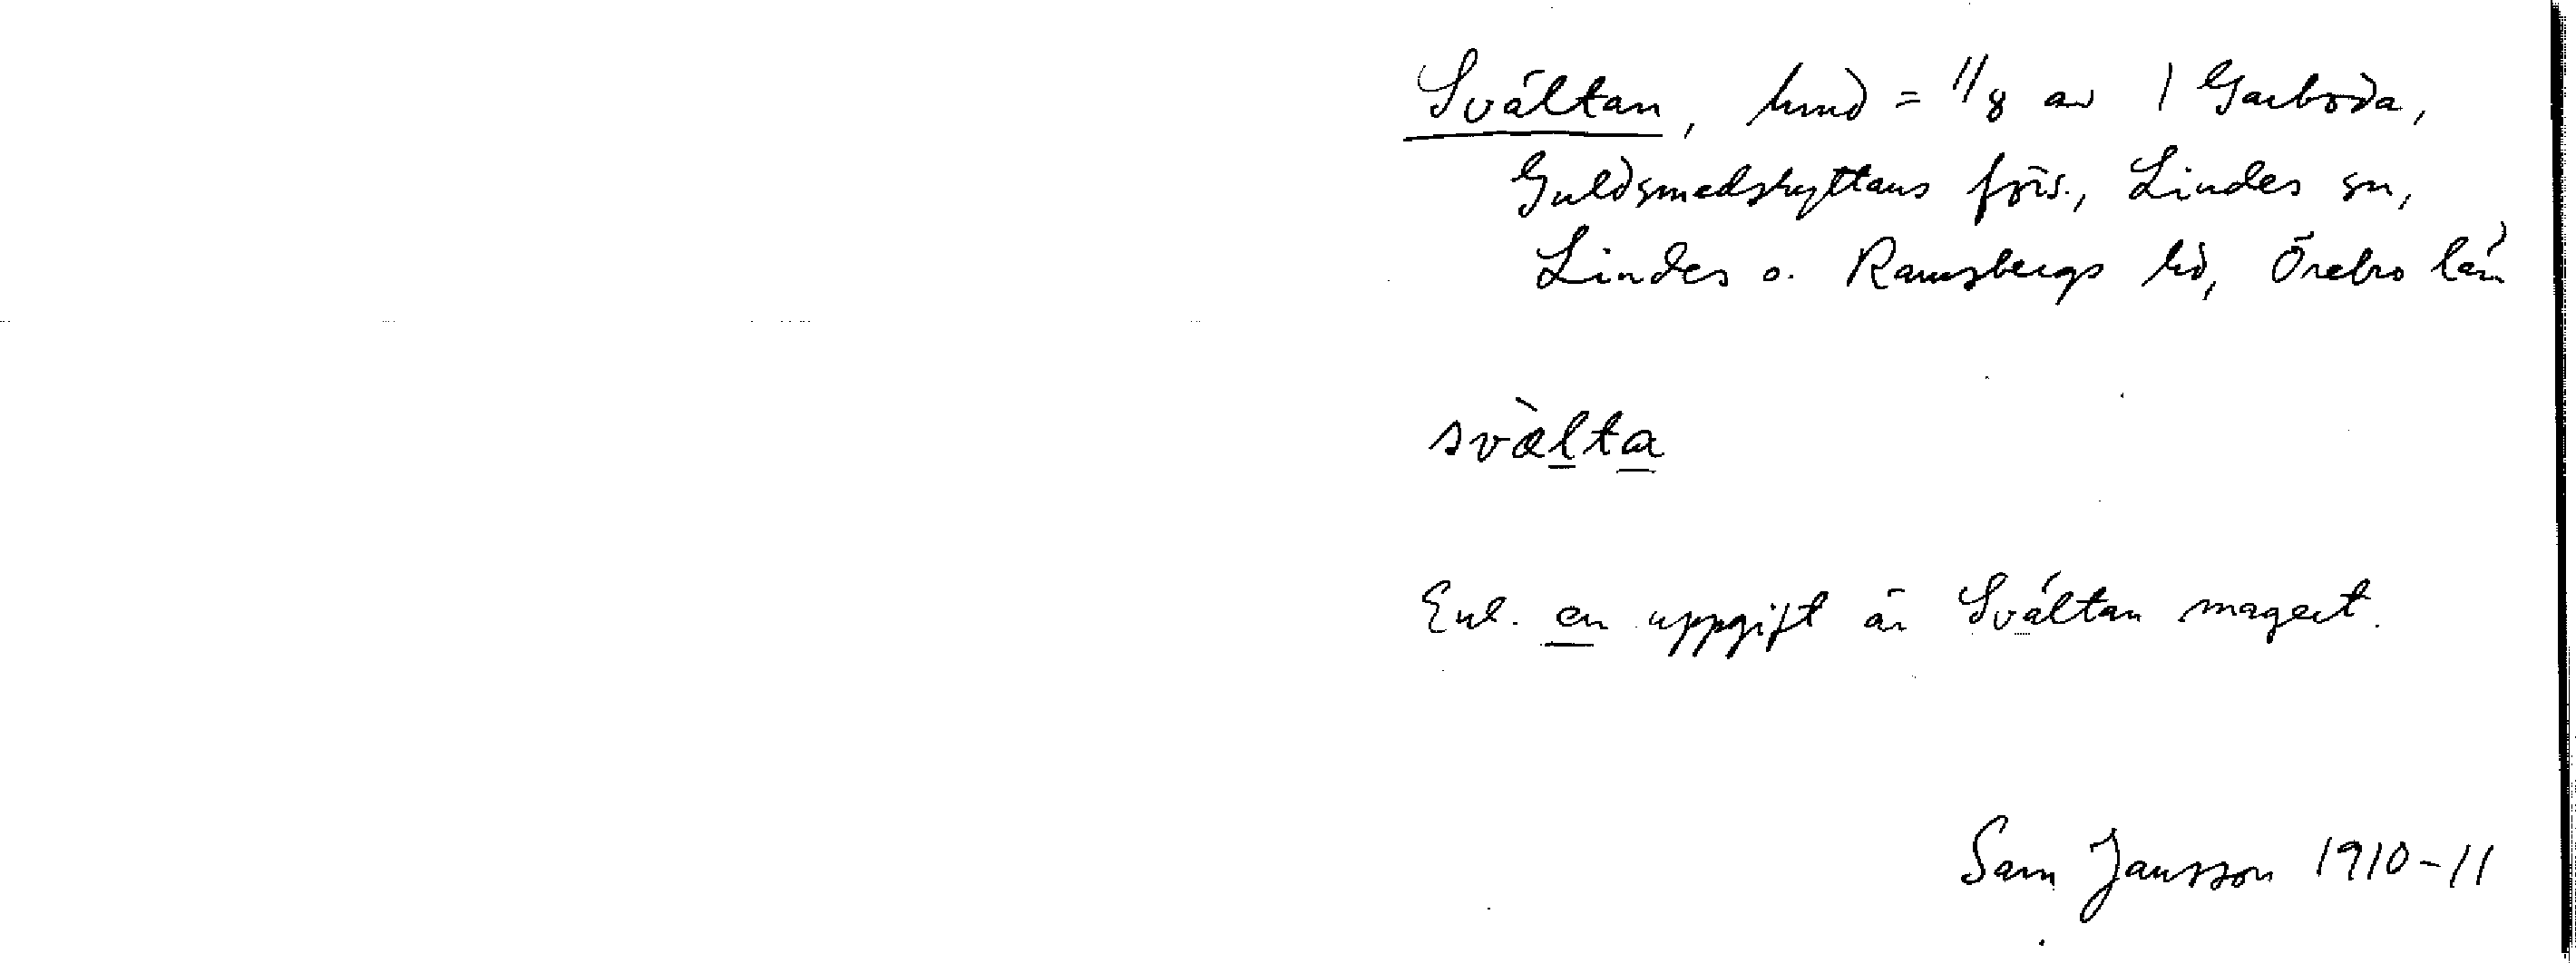 Svältan, hmd = 1/8 av 1 Garboda,
Guldsmedshyttans förs., Lindes sn,
Lindes o. Ramsbergs hd, Örebro län
svælta
Enl. en uppgift är Svältan magert.
Sam Jansson 1910-11